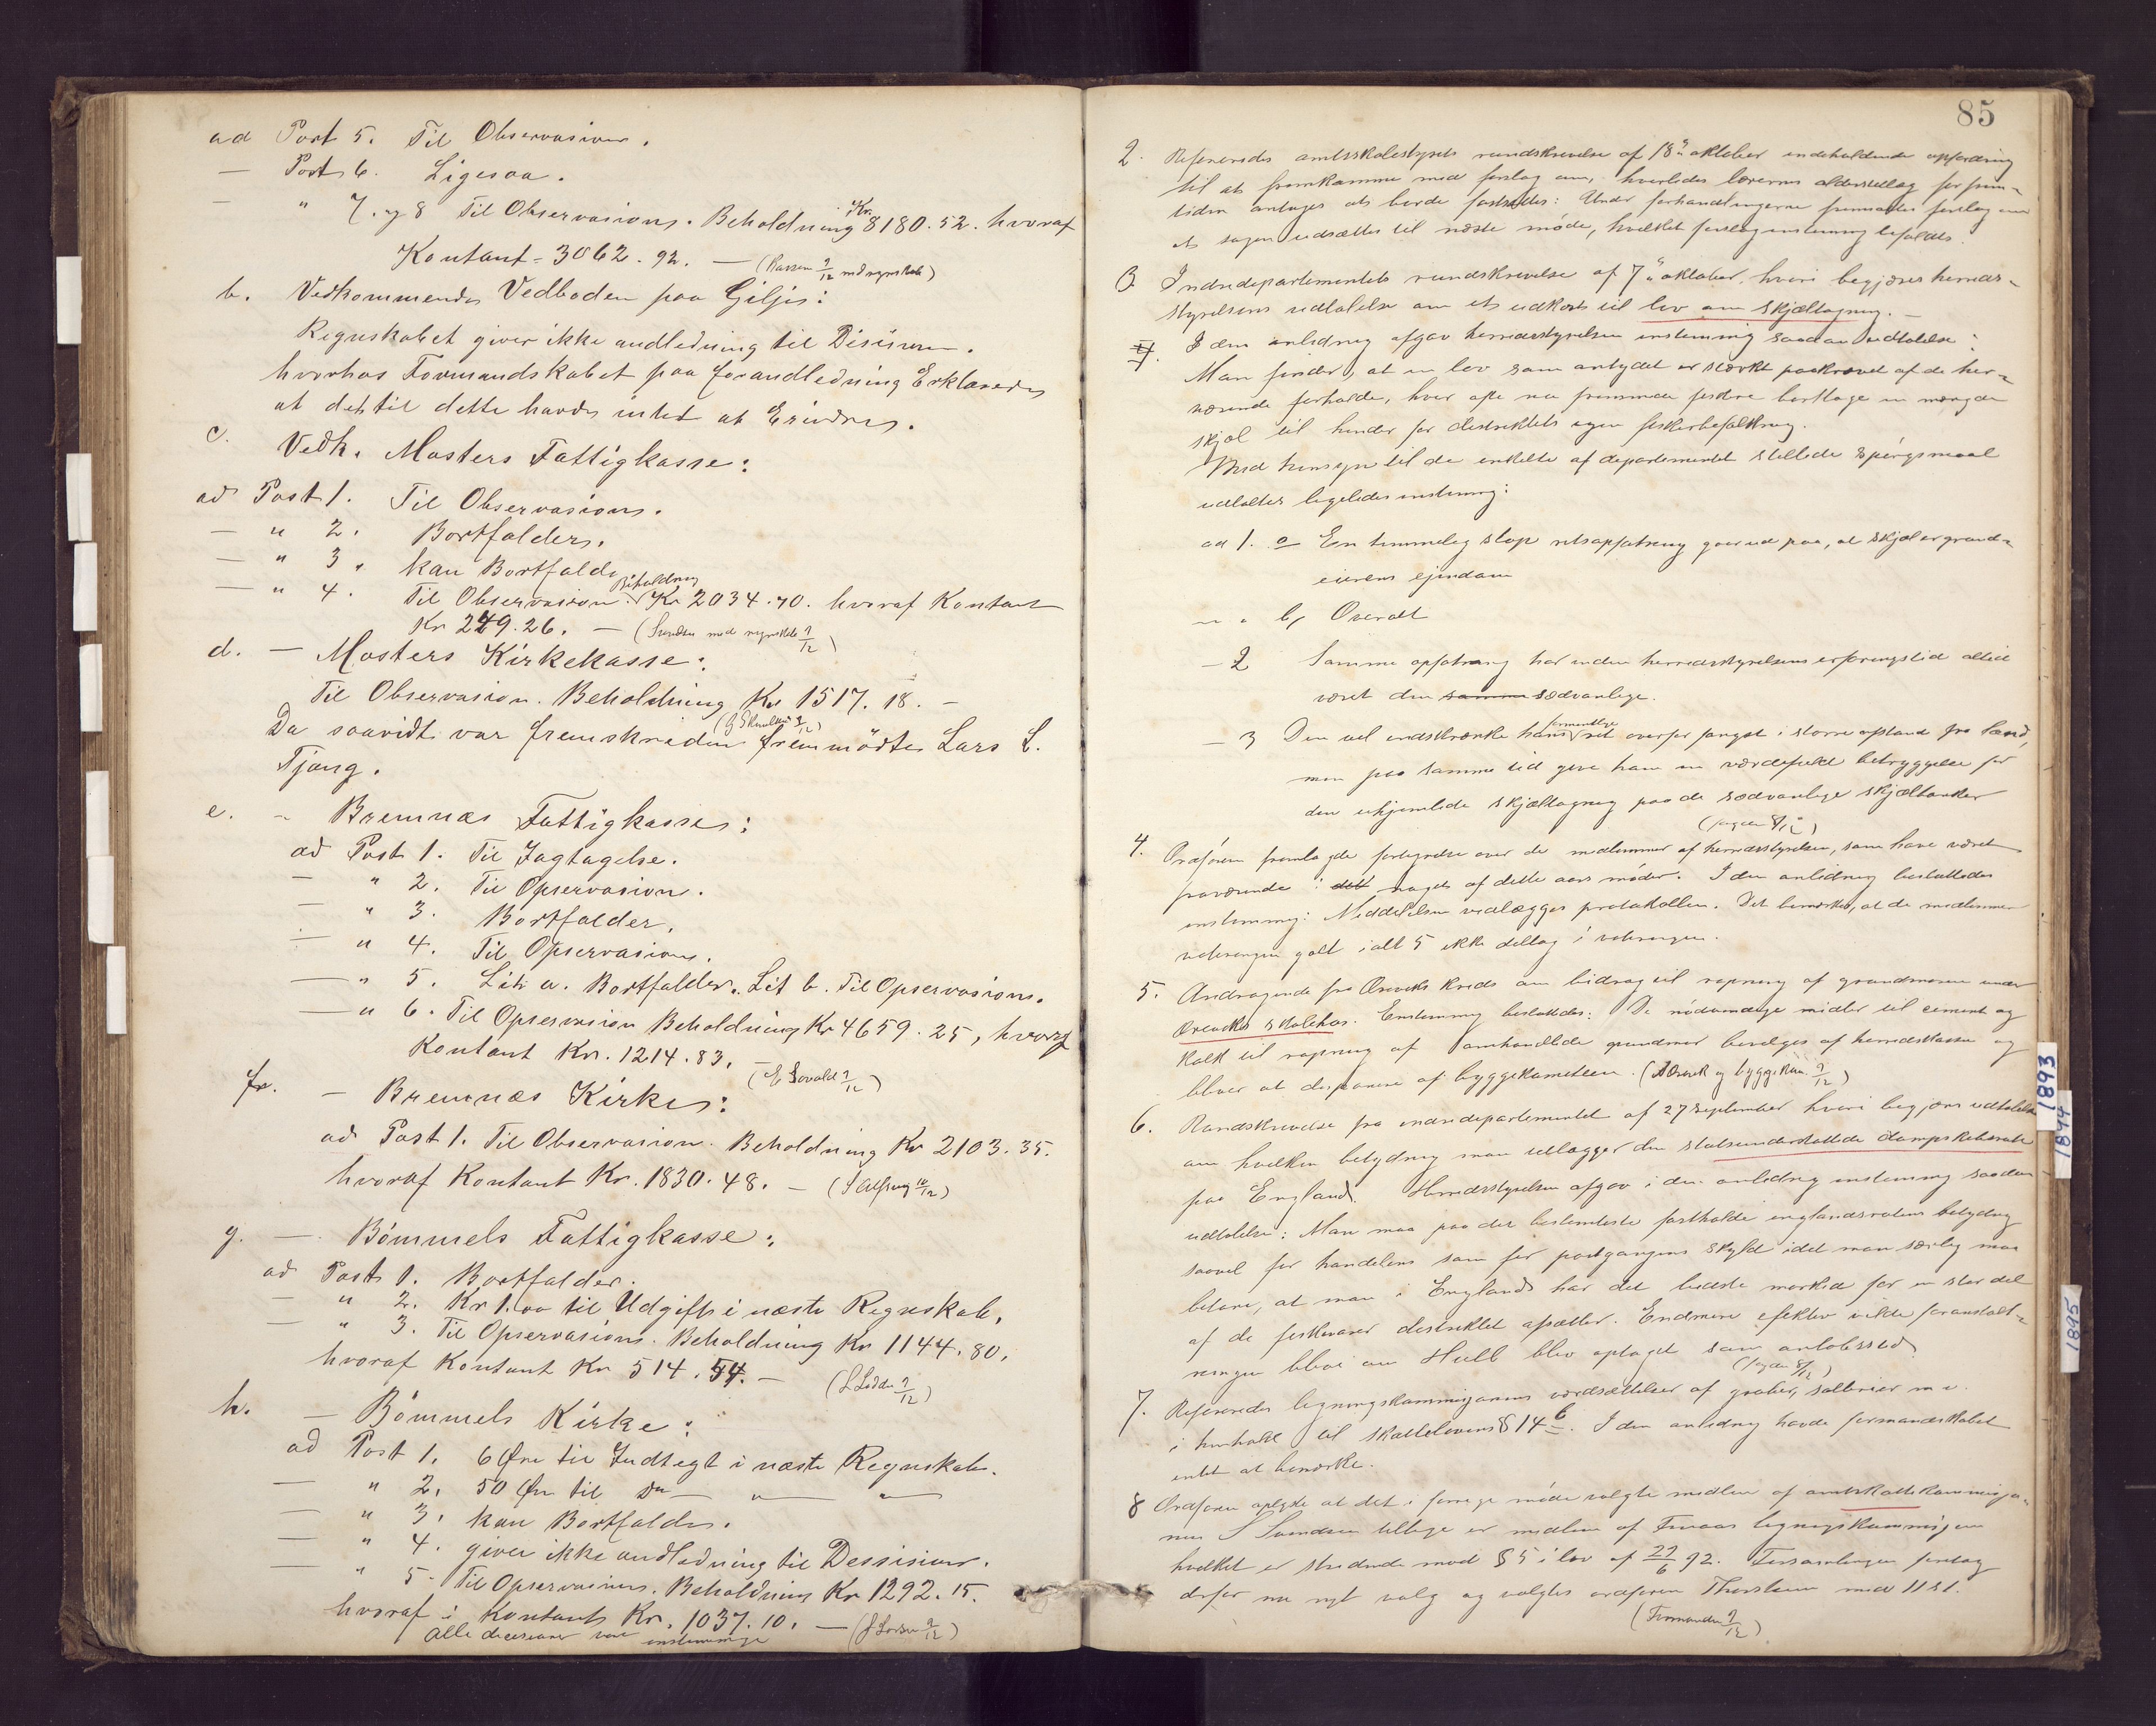 ad Post 5. Til Observasion.
— Post 6. Ligesaa.
— " 7. og 8 Til Observasions. Beholdning Kr 8180.52. hvoraf
Kontant = 3062.92. — (Kassen 9/12 med regnskab)
b. Vedkommende Vedboden paa Giljes:
Regnskabet giver ikke andledning til Disisum.
hvorhos Formandskabet paa forandledning Erklæredes
at det til dette havdes intet at Erindres.
c. Vedk. Mosters Fattigkasse:
ad Post 1. Til Observasions.
— " 2. Bortfalder.
— " 3. kan Bortfalde
— " 4. Til Observasion. Beholdning Kr 2034.70. hvoraf Kontant
Kr 249.26. — (Svendsen med regnskab 9/12)
d. — Mosters Kirkekasse:
Til Observasion. Beholdning Kr 1517.18. —
Da saavidt var fremskriden fremmödte Lars L.
Tjong.
e. — Bremnæs Fattigkasses:
ad Post 1. Til Iagtagelse.
— " 2. Til Opservasion.
— " 3. Bortfalder.
— " 4. Til Opservasions.
— " 5. Lit a. Bortfalder. Lit b. Til Opservasions.
— " 6. Til Opservasion Beholdning Kr 4659.25, hvoraf
Kontant Kr. 1214.83. — (E Sovald 9/12)
f. — Bremnæs Kirkes:
ad Post 1. Til Observasion. Beholdning Kr 2103.35.
hvoraf Kontant Kr. 1830.48. — (10/12)
g. — Bömmels Fattigkasse:
ad Post 1. Bortfalder.
— " 2. Kr 1.00 til Udgift i næste Regnskab.
— " 3. Til Opservasions. Beholdning Kr 1144.80.
hvoraf Kontant Kr 514.54. — (9/12)
h. — Bömmels Kirke:
ad Post 1. 6 Øre til Indtegt i næste Regnskab.
— " 2. 50 Øre til Do — " — " —
— " 3. kan Bortfalde.
— " 4. giver ikke andledning til Dessisions.
— " 5. Til Opservasions. Beholdning Kr 1292.15.
hvoraf i Kontant Kr. 1037.10. — (J Larsen 9/12)
Alle decisioner vare enstemmige
85
2. Refereredes amtsskolestyrets rundskrivelse af 18de oktober indeholdende opfordring
til at fremkomme med forslag om, hvorledes lærernes alderstillæg for frem-
tiden antages at burde fastsættes: Under forhandlingerne fremsattes forslag om
at sagen udsættes til næste møde, hvilket forslag enstemmig befaldtes.
3 Indredepartementets rundskrivelse af 7de oktober, hvori begjæres herreds-
styrelsens udtalelse om et udkast til lov om skjæltagning. —
I den anledning afgav herredsstyrelsen enstemmig saadan udtalelse:
Man finder, at en lov som antydet er stærkt paakrævet af de her-
værende forholde, hvor ofte nu fremmede fiskere borttage en mængde
skjæl til hinder for distriktets egen fiskerbefolkning.
Med hensyn til de enkelte af departementet stillede spörgsmaal
udtaltes ligeledes enstemmig:
ad 1. a En temmelig slap retsopfatning gaar ud paa, at skjæl er grund-
eierens ejendom
— " b, Overalt
— 2 Samme opfatning har inden herredsstyrelsens erfaringstid altid
været den samme sædvanlige.
— 3 Den vil indskrænke hans formentlige ret overfor fangst i større afstand fra land,
men paa samme tid give ham en værdifuld betryggelse for
den uhjemlede skjæltagning paa de sædvanlige skjælbanker
(fogden 9/12)
4. Ordføren fremlagde fortegnelse over de medlemmer af herredsstyrelsen, som have været
fraværende i det noget af dette aars møder. I den anledning besluttedes
enstemmig: Meddelelsen vedlægges protokollen. Det bemærkes, at de medlemmer
voteringen galt ialt 5 ikke deltog i voteringen.
5. Andragende fra Øreviks kreds om bidrag til rapning af grundmuren under
Øreviks skolehus. Enstemmig besluttedes: De nödvændige midler til cement og
kalk til rapning af omhandlede grundmur bevilges af herredskassen og
bliver at disponere af byggekomiteen. (Ørevik og byggekom. 9/12)
6. Rundskrivelse fra indredepartementet af 27 September hvori begjæres udtalelse
om hvilken betydning man tillægger den statsunderstøttede dampskibsrute
paa England. Herredsstyrelsen afgav i den anledning enstemmig saadan
udtalelse: Man maa paa det bestemteste fastholde englandsrutens betydning
saavel for handelens som for postgangens skyld idet man særlig maa
betone, at man i England har det bedste marked for en stor del
af de fiskevarer distriktet afsætter. Endmere effektiv vilde foranstalt-
ningen blive om Hull blev optaget som anløbssted.
(fogden 9/12)
7. Refereredes ligningskommisjonens værdsættelser af gruber, salterier m. v.
i henhold til skattelovens § 14 b. I den anledning havde formandskabet
intet at bemærke.
8 Ordføren oplyste at det i forrige møde valgte medlem af amtskattekommisjo-
nen S Svendsen tillige er medlem af Finaas ligningskommisjon
hvilket er stridende mod § 5 i lov af 29/6 92. Forsamlingen foretog
derfor nu nyt valg og valgtes ordføren Thorsteen med 11 st.
(Formanden 9/12)
1893
1894
1895